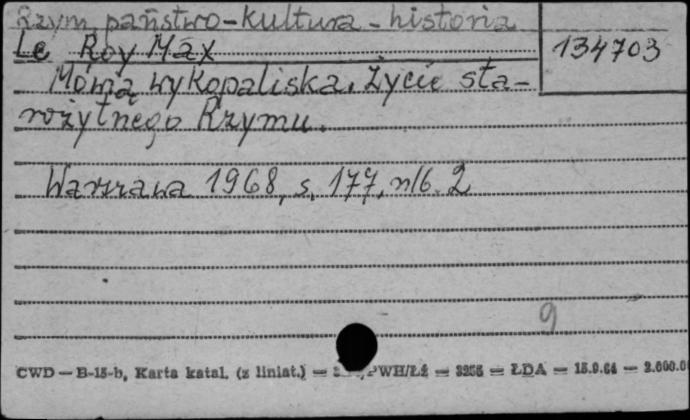 Rzym państwo - kultura - historia
Le Roy Max
134703
Mówią wykopaliska. Życie sta-
rożytnego Rzymu.
Warszawa 1968, s. 177, nlb. 2
9
CWD — B-15-b, Karta katal. (z liniat.) — PWH/Łź — 3256 — ŁDA — 15.9.64 — 2.000.0